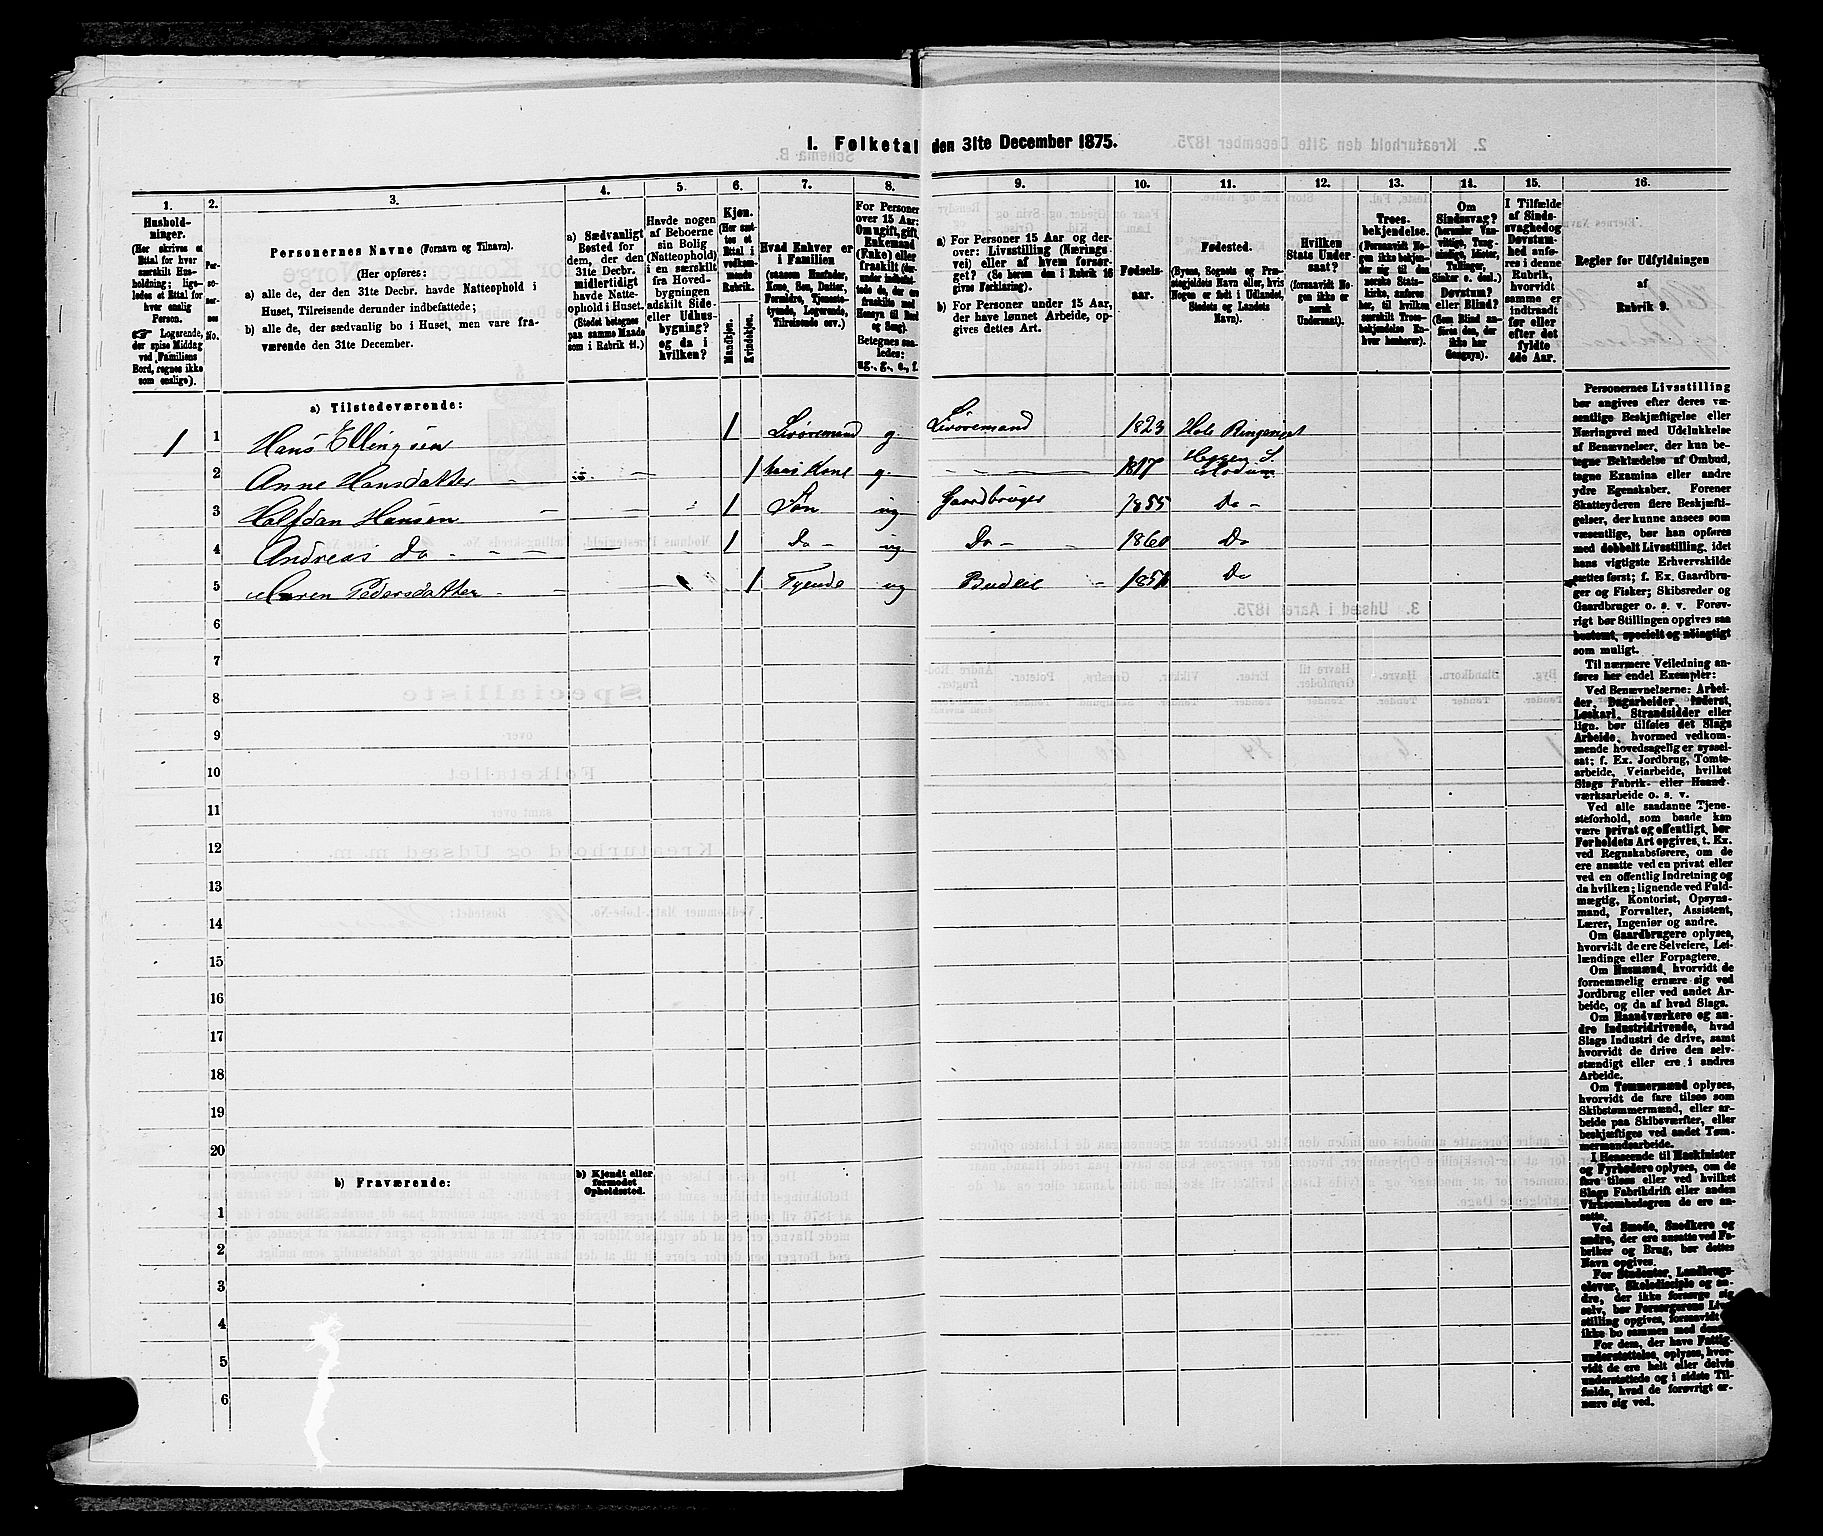 1. Folketal den 31te December 1875.
1. 2. 3. 4. 5. 6. 7. 8. 9. 10. 11. 12. 13. 14. 15. 16.
Husholdninger.
(Her skrives et
Ettal for hver
særskilt Husholdning;
ligeledes
et Ettal for
hver enslig
Person.
☞ Logerende,
der spise Middag
ved Familiens
Bord, regnes ikke
som enslige).
Personernes No.
Personernes Navne (Fornavn og Tilnavn).
(Her opføres:
a) alle de, der den 31te Decbr. havde Natteophold i
Huset, Tilreisende derunder indbefattede;
b) alle de, der sædvanlig bo i Huset, men vare fraværende
den 31te December.
a) Sædvanligt
Bosted for
dem, der den
31te Decbr.
midlertidigt
havde Natteophold
i Huset.
(Stedet betegnes
paa samme Maade
som i Rubrik 11.)
Havde nogen
af Beboerne
sin Bolig
(Natteophold)
i en særskilt
fra Hovedbygningen
adskilt Side-
eller Udhusbygning?
og da i
hvilken?
Kjøn.
(Her sættes
et
Ettal i
vedkommende
Rubrik.
Mandkjøn.
Kvindekjøn.
Hvad Enhver er
i Familien
(saasom Husfader,
Kone, Søn, Datter,
Forældre, Tjenestetyende,
Logerende,
Tilreisende osv.)
For Personer
over 15 Aar:
Om ugift, gift,
Enkemand
(Enke) eller
fraskilt
Betegnes saaledes:
ug., g., e., f.
a) For Personer 15 Aar og derover:
Livsstilling (Næringsvei)
eller af hvem forsørget?
(Se herom den i Rubrik 16
givne Forklaring).
b) For Personer under 15 Aar,
der have lønnet Arbeide, opgives
dettes Art.
Fødselsaar.
Fødested.
(Byens, Sognets og Præstegjeldets
Navn eller, hvis
Nogen er født i Udlandet,
Stedets og Landets
Navn).
Hvilken
Stats Undersaat?
(forsaavidt Nogen
ikke er
norsk
Undersaat).
Troesbekjendelse.
(Forsaavidt Nogen
ikke bekjender
sig til den
norske Statskirke,
anføres
her, til hvilken
særskilt Troesbekjendelse
Enhver
henhører).
Om
Sindssvag?
Døvstum?
eller Blind?
(Som Blind anføres
den, der
ikke har
Gangsyn).
I Tilfælde
af Sindssvaghed
og
Døvstumhed
anføres
i denne
Rubrik,
hvorvidt
samme er
indtraadt
før eller
efter det
fyldte
4de Aar.
Regler for Udfyldningen
af
Rubrik 9.
a) Tilstedeværende:
1 1 Hans Ellingsen 1 g. 1823 Hole Ringeriget
2 Anne Hansdatter 1 hans Kone g. 1817 Heggen S. Modum
3 Halfdan Hansen 1 Søn ug Gaardbruger 1855 Do
4 Andreas Do 1 Do ug Do 1860 Do
5 Maren Pedersdatter 1 Tyende ug Budeie Do
6
7
8
9
10
11
12
13
14
15
16
17
18
19
20
b) Fraværende: b) Kjendt eller
formodet
Opholdssted.
1
2
3
4
5
6
Personernes Livsstilling
bør angives efter deres væsentlige
Beskjæftigelse eller
Næringsvei med Udelukkelse
af Benævnelser, der kun betegne
Beklædelse af Ombud,
tagne Examina eller andre
ydre Egenskaber. Forener
Skatteyderen flere Beskjæftigelser,
der kunne ansees som
væsentlige, bør han opføres
med dobbelt Livsstilling, idet
hans vigtigste Erhvervskilde
sættes først; f. Ex. Gaardbruger
og Fisker; Skibsreder og
Gaardbruger o. s. v. Forøvrigt
bør Stillingen opgives saa
bestemt, specielt og nøiagtigt
som muligt.
Til nærmere Veiledning anføres
her endel Exempler:
Ved Benævnelserne: Arbeider,
Dagarbeider, Inderst,
Løskarl, Strandsidder eller
lign. bør tilføies det Slags
Arbeide, hvormed vedkommende
hovedsagelig er sysselsat;
f. Ex. Jordbrug, Tomtearbeide,
Veiarbeide, hvilket
Slags Fabrik- eller Haandværksarbeide
o. s. v.
Ved alle saadanne Tjenesteforhold,
som baade kan
være privat og offentligt, bør
Forholdets Art opgives, t. Ex.
ved Regnskabsførere, om de
ere ansatte ved en privat eller
ved en offentlig Indretning og
da hvilken; lignende ved Fuldmægtig,
Kontorist, Opsynsmand,
Forvalter, Assistent,
Lærer, Ingeniør og andre.
Om Gaardbrugere oplyses,
hvorvidt de ere Selveiere, Leilændinge
eller Forpagtere.
Om Husmænd, hvorvidt de
fornemmelig ernære sig ved
Jordbrug eller ved andet Arbeide,
og da af hvad Slags.
Om Haandværkere og andre
Industridrivende, hvad
Slags Industri de drive, samt
hvorvidt de drive den selvstændigt
eller ere i andres
Arbeide.
Om Tømmermænd oplyses,
hvorvidt de fare tilsøs som
Skibstømmermænd, eller arbeide
paa Skibsværfter, eller
beskjæftiges ved andet Tømmermandsarbeide.
I Henseende til Maskinister
og Fyrbødere oplyses, om de
fare tilsøs eller ved hvilket
Slags Fabrikdrift eller anden
Virksomhedsgren de ere ansatte.
Ved Smede, Snedkere og
andre, der ere ansatte ved Fabriker
og Brug, bør dettes
Navn opgives.
For Studenter, Landbrugselever,
Skoledisciple og andre,
der ikke forsørge sig
selv, bør Forsørgerens Livsstilling
opgives, forsaavidt de
ikke bo sammen med denne.
For dem, der have Fattigunderstøttelse,
oplyses, hvorvidt
de ere helt eller delvis
understøttede og i sidste Tilfælde,
hvad de forøvrigt ernære
sig ved.